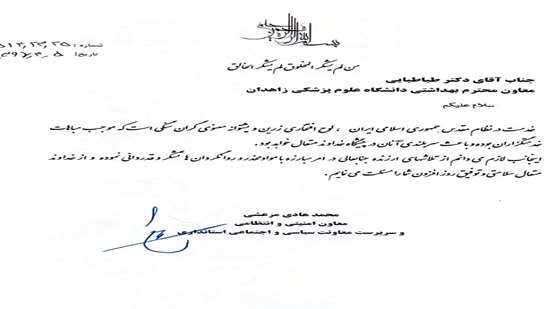 بسم الله الرحمن الرحیم
شماره:
تاریخ:
من لم یشکر المخلوق لم یشکر الخالق
جناب آقای دکتر طباطبایی
معاون محترم بهداشتی دانشگاه علوم پزشکی زاهدان
سلام علیکم
خدمت در نظام مقدس جمهوری اسلامی ایران ، لوح افتخاری زرین و پشتوانه معنوی گران سنگی است که موجب مباهات
خدمتگزاران بوده و باعث سربلندی آنان در پیشگاه خداوند متعال خواهد بود.
اینجانب لازم می دانم از تلاشهای ارزنده جنابعالی در امر مبارزه با مواد مخدر و روانگردان ها تشکر و قدردانی نموده و از خداوند
متعال سلامتی و توفیق روز افزون شما را مسئلت می نمایم.
محمد هادی مرعشی
معاون امنیتی و انتظامی
و سرپرست معاونت سیاسی و اجتماعی استانداری